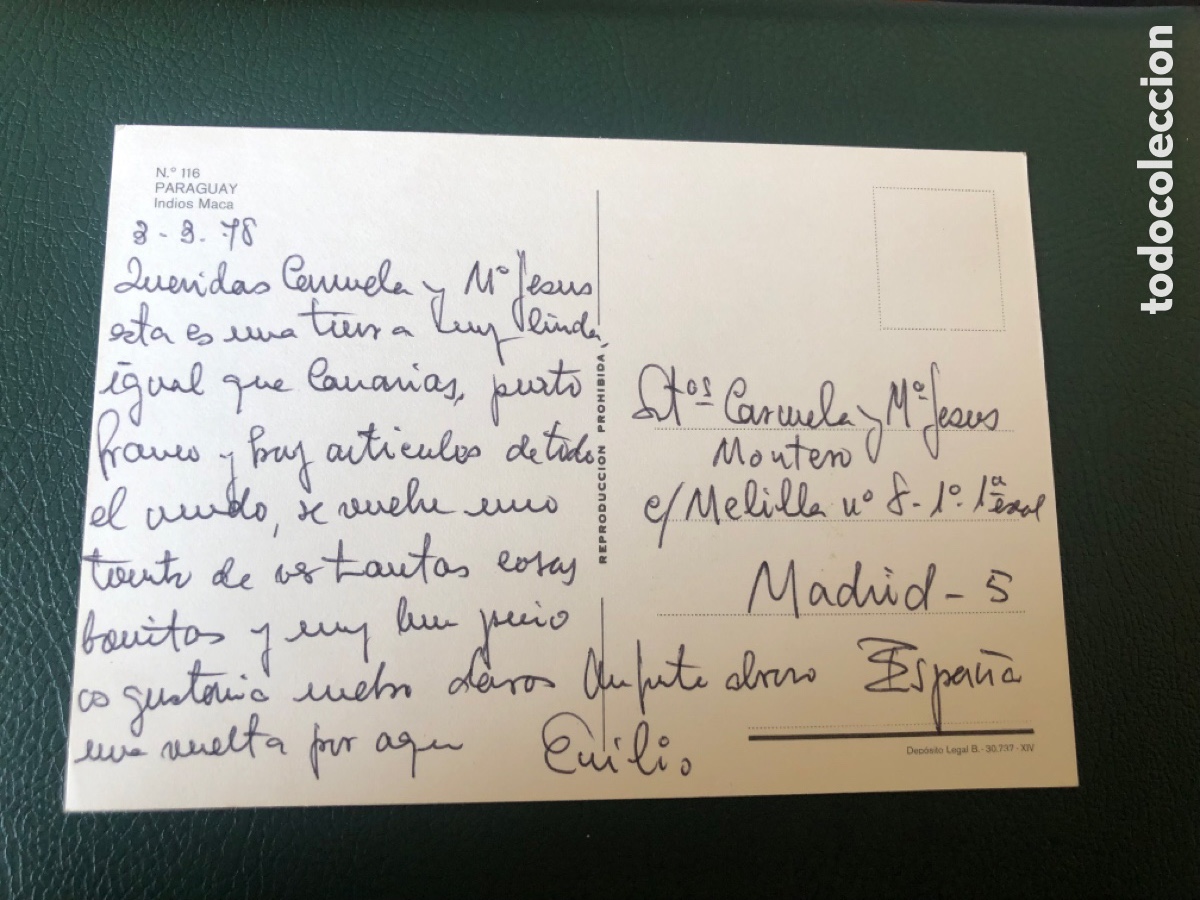 N.º 116
PARAGUAY
Indios Maca
3-3-78
Queridas Carmela y Mª Jesus
esta es una tierra muy linda,
igual que Canarias, puerto
franco y hay articulos de todo
el mundo, se vuelve uno
tonto de ver tantas cosas
bonitas y muy buen precio
os gustaria mucho daros
una vuelta por aqui
Un fuerte abrazo
Emilio
REPRODUCCION PROHIBIDA
Srtas Carmela y Mª Jesus
Montero
c/ Melilla nº 8-1º 1ª
Madrid-5
España
Depósito Legal B.-30.737-XIV
todocoleccion